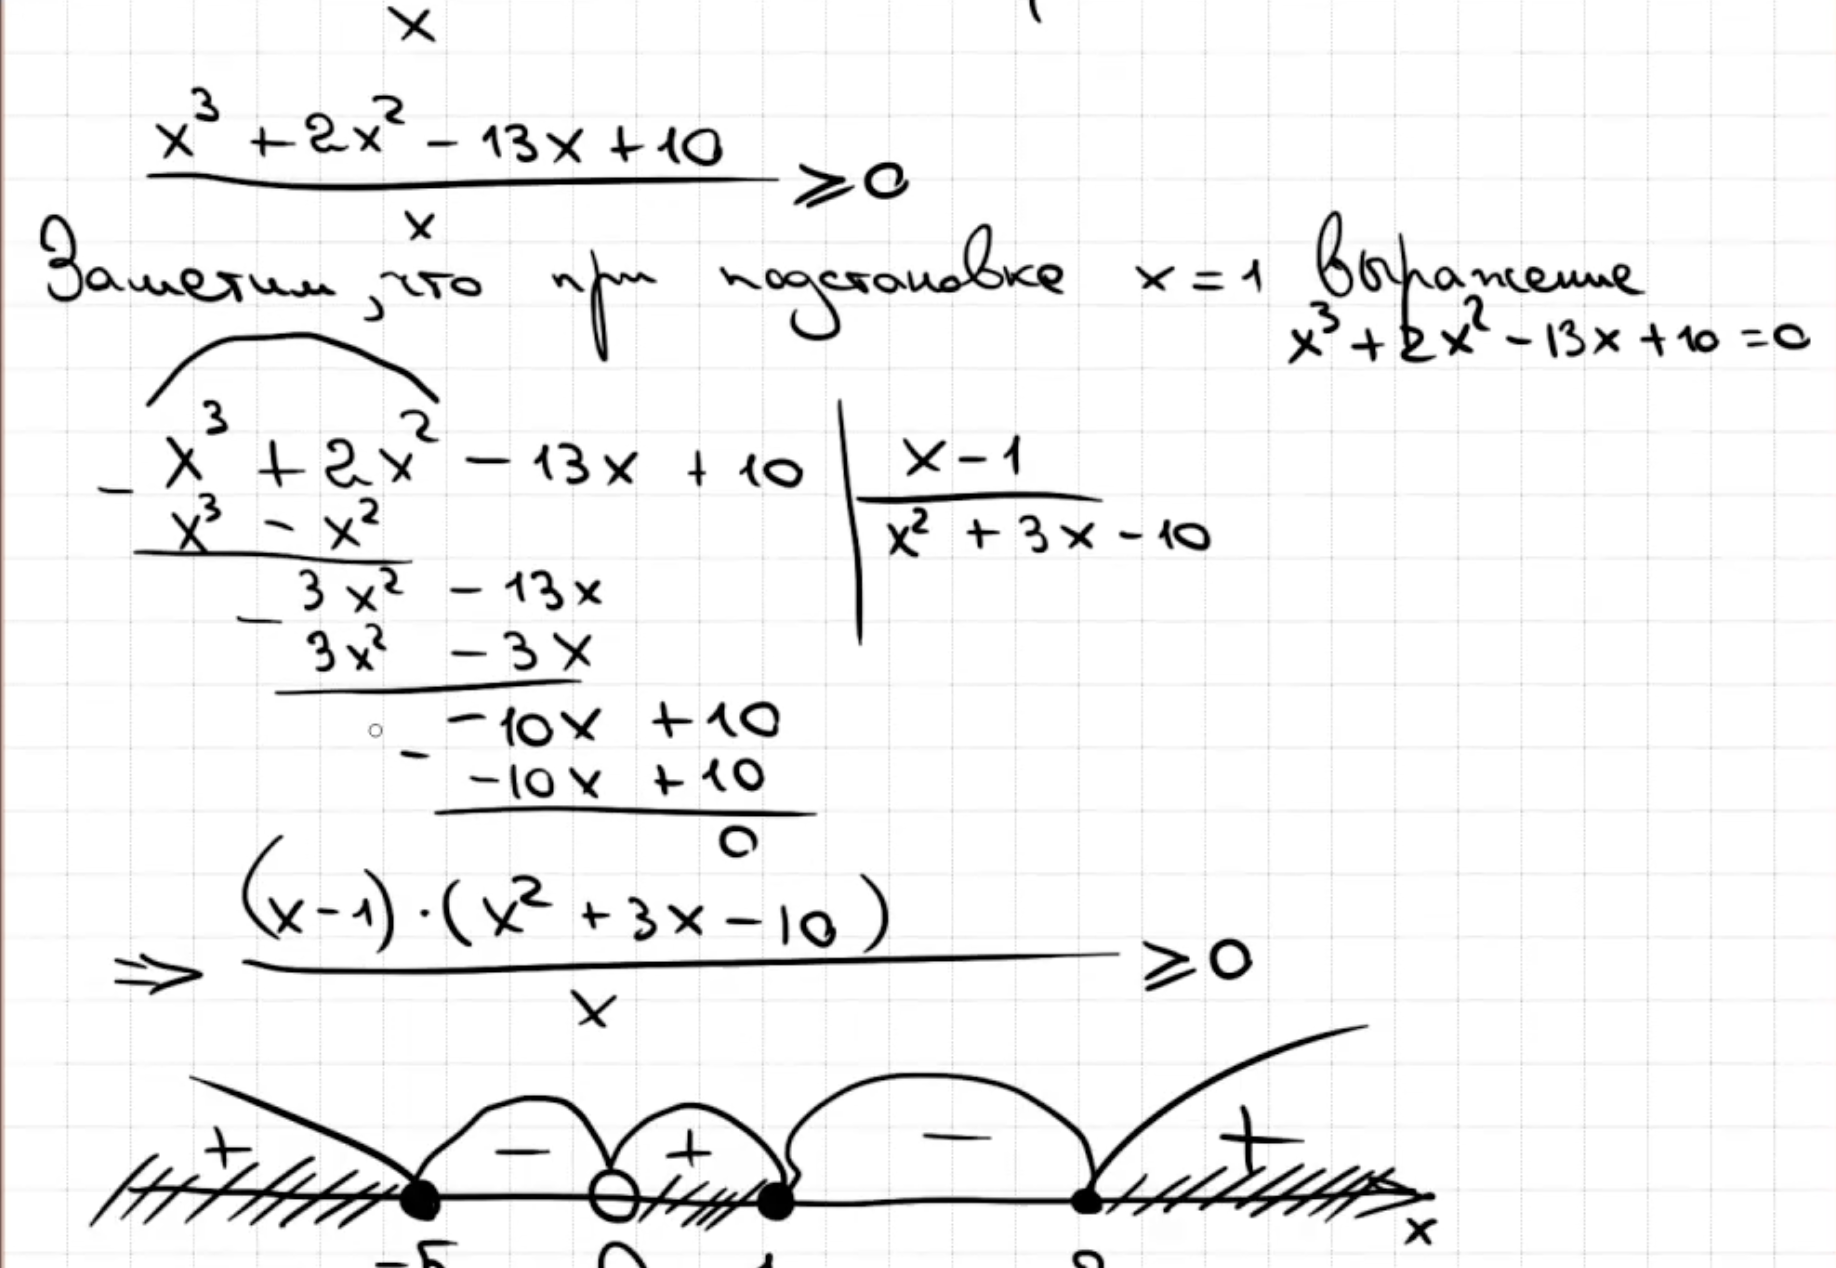 x
x³ + 2x² - 13x + 10
x
⩾ 0
Заметим, что при подстановке x = 1 выражение
x³ + 2x² - 13x + 10 = 0
- x³ + 2x² - 13x + 10 | x - 1
x³ - x² | x² + 3x - 10
- 3x² - 13x
3x² - 3x
- -10x + 10
-10x + 10
0
(x-1)·(x² + 3x - 10)
⇒ ⩾ 0
x
+ - + - +
x
-5 0 1